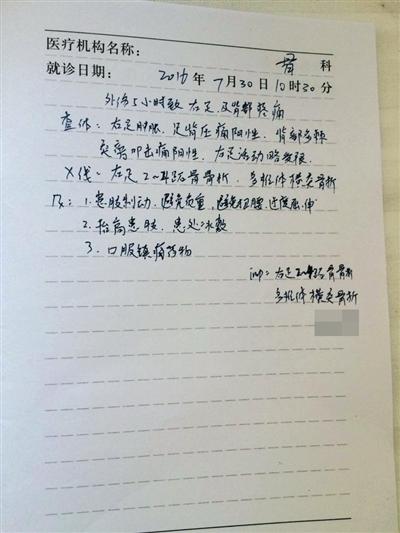 医疗机构名称: 骨 科
就诊日期: 2016 年 7 月 30 日 10 时 30 分
外伤5小时致右足及背部疼痛
查体: 右足肿胀, 足背压痛阳性, 背部多棘
突旁叩击痛阳性, 右足活动略受限.
X线: 右足2~4跖骨骨折, 多椎体横突骨折
1. 患肢制动, 避免负重, 避免 腰过度屈伸
2. 抬高患肢, 患处冰敷
3. 口服镇痛药物
imp: 右足2~4跖骨骨折
多椎体横突骨折